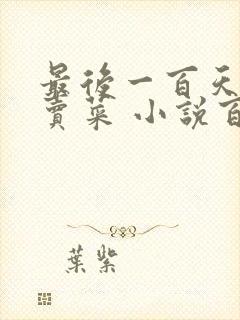 最後一百天
賣菜 小說百
葉紫